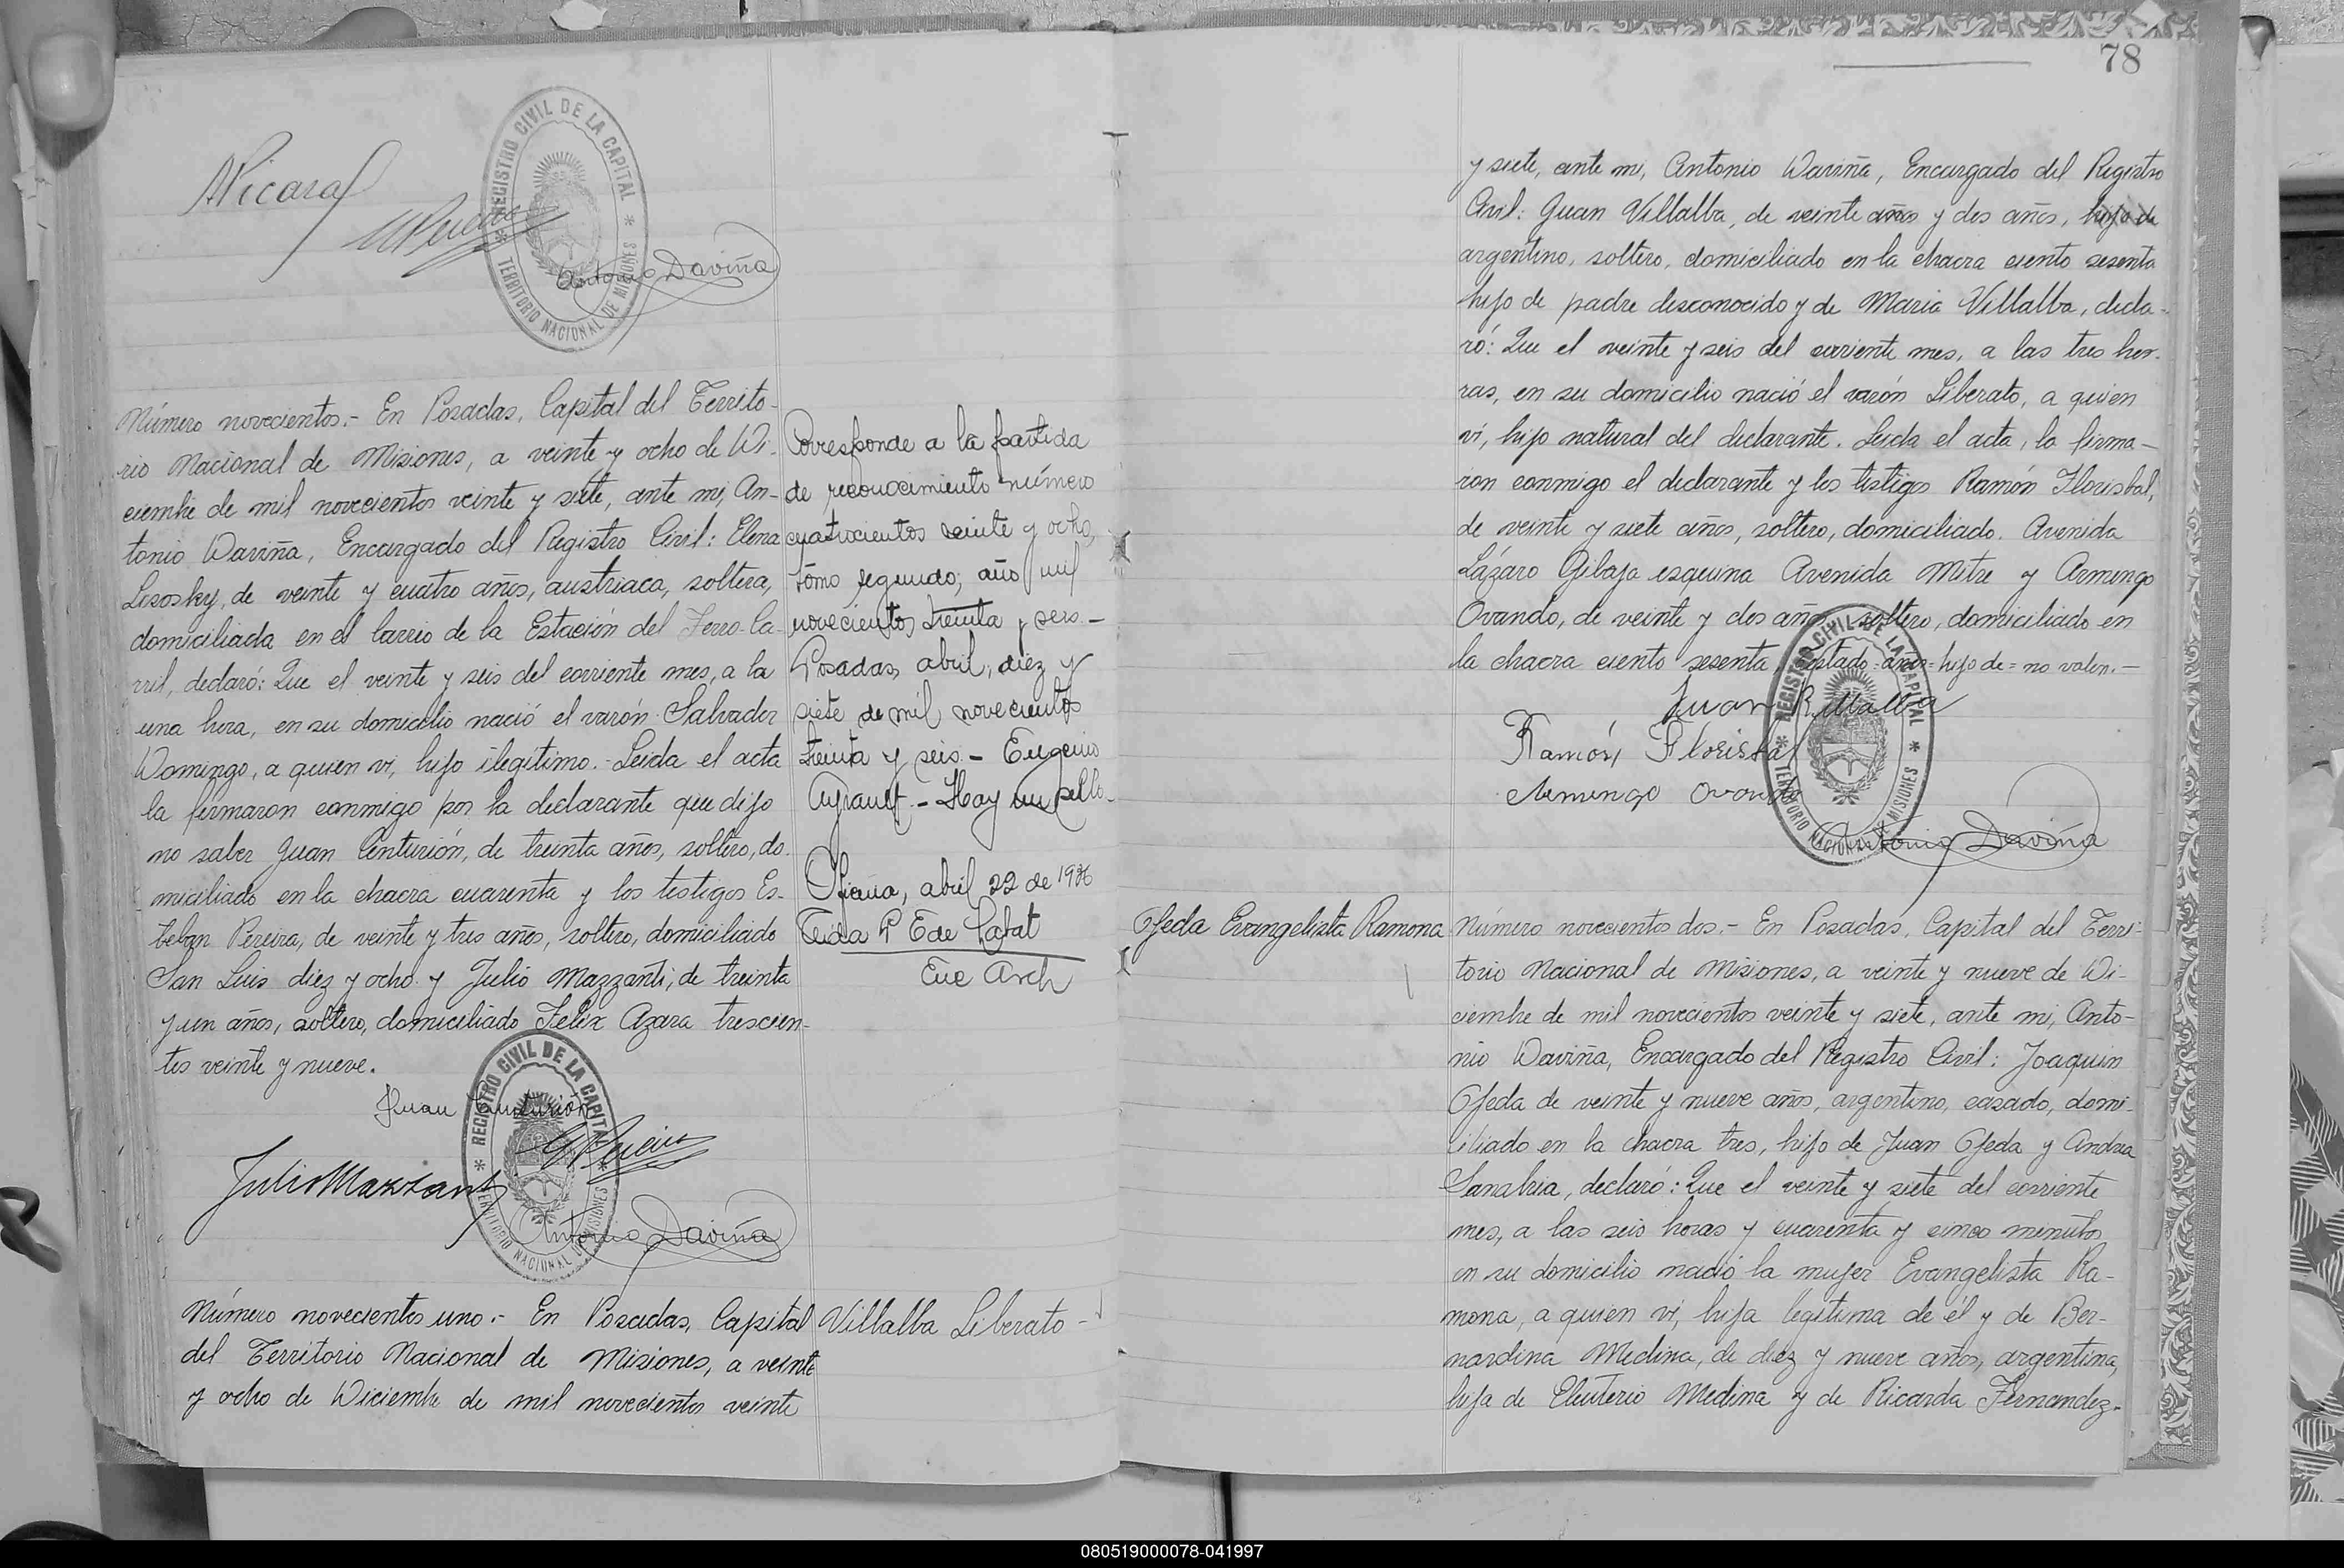 Antonio Daviña
REGISTRO CIVIL DE LA CAPITAL
TERRITORIO NACIONAL DE MISIONES
Número novecientos.- En Posadas, Capital del Territo-
rio Nacional de Misiones, a veinte y ocho de Di-
ciembre de mil novecientos veinte y siete, ante mi, An-
tonio Daviña, Encargado del Registro Civil: Elena
Lisosky, de veinte y cuatro años, austriaca, soltera,
domiciliada en el barrio de la Estación del Ferro-Ca-
rril, declaró: Que el veinte y seis del corriente mes, a la
una hora, en su domicilio nació el varón Salvador
Domingo, a quien vi, hijo ilegítimo.- Leida el acta
la firmaron conmigo por la declarante que dijo
no saber Juan Centurión, de treinta años, soltero, do-
miciliado en la chacra cuarenta y los testigos Es-
teban Pereira, de veinte y tres años, soltero, domiciliado
San Luis diez y ocho y Julio Mazzanti, de treinta
y un años, soltero, domiciliado Felix Azara trescien-
tos veinte y nueve.
Juan Centurión
Julio Mazzanti
Antonio Daviña
REGISTRO CIVIL DE LA CAPITAL
TERRITORIO NACIONAL DE MISIONES
Corresponde a la partida
de reconocimiento número
cuatrocientos veinte y ocho,
tomo segundo, año mil
novecientos treinta y seis.-
Posadas, abril, diez y
siete de mil novecientos
treinta y seis.- Eugenio
- Hay un sello.-
Oficina, abril 22 de 1936
Enc Arch
Número novecientos uno.- En Posadas, Capital
del Territorio Nacional de Misiones, a veinte
y ocho de Diciembre de mil novecientos veinte
Villalba Liberato -
78
y siete, ante mi, Antonio Daviña, Encargado del Registro
Civil: Juan Villalba, de veinte años y dos años, hijo de
argentino, soltero, domiciliado en la chacra ciento sesenta
hijo de padre desconocido y de Maria Villalba, decla-
ró: Que el veinte y seis del corriente mes, a las tres ho-
ras, en su domicilio nació el varón Liberato, a quien
vi, hijo natural del declarante. Leida el acta, la firma-
ron conmigo el declarante y los testigos Ramón Floristal,
de veinte y siete años, soltero, domiciliado. Avenida
Lázaro Gibaja esquina Avenida Mitre y Armingo
Ovando, de veinte y dos años, soltero, domiciliado en
la chacra ciento sesenta, testado=años=hijo de= no valen.-
Juan Villalba
Ramón Floristal
Armingo Ovando
Antonio Daviña
REGISTRO CIVIL DE LA CAPITAL
TERRITORIO NACIONAL DE MISIONES
Ojeda Evangelista Ramona
Número novecientos dos.- En Posadas, Capital del Terri-
torio Nacional de Misiones, a veinte y nueve de Di-
ciembre de mil novecientos veinte y siete, ante mi, Anto-
nio Daviña, Encargado del Registro Civil: Joaquin
Ojeda de veinte y nueve años, argentino, casado, domi-
ciliado en la chacra tres, hijo de Juan Ojeda y Andrea
Sanabria, declaró: Que el veinte y siete del corriente
mes, a las seis horas y cuarenta y cinco minutos
en su domicilio nació la mujer Evangelista Ra-
mona, a quien vi, hija legitima de él y de Ber-
nardina Medina, de diez y nueve años, argentina,
hija de Eleuterio Medina y de Ricarda Fernandez.-
080519000078-041997